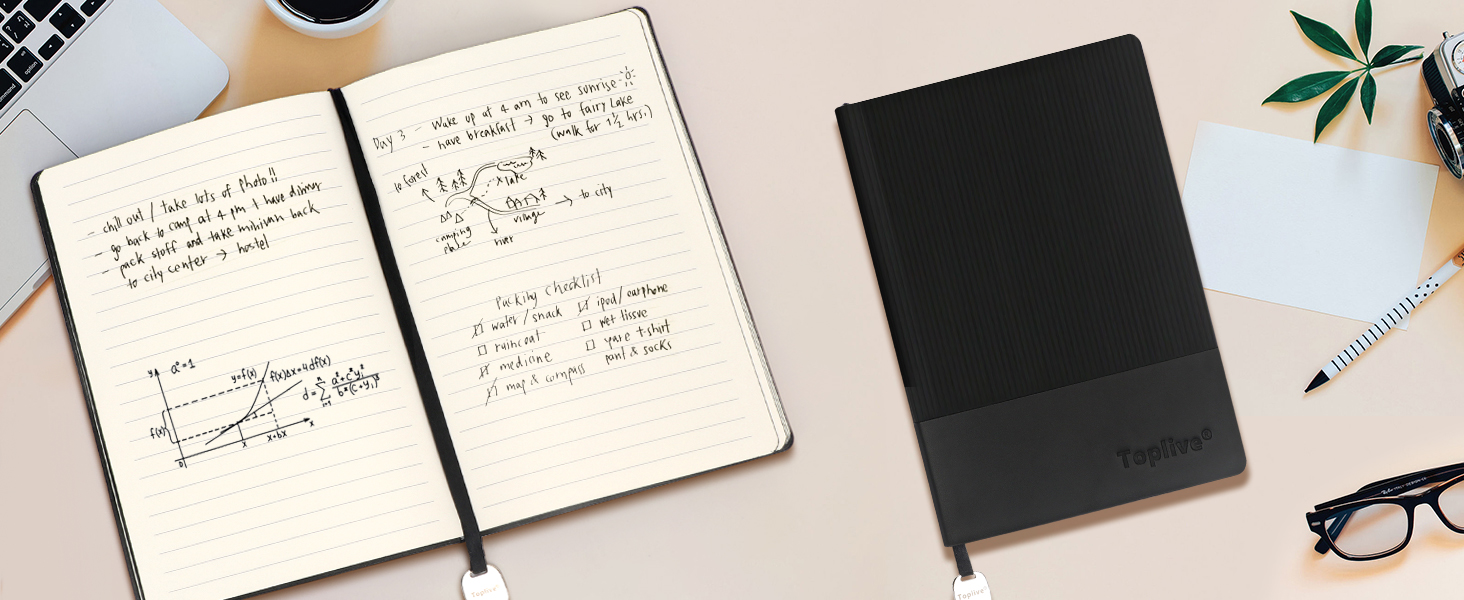 option
command
- chill out / take lots of photo!!
- go back to camp at 4 pm & have dinner
- pack stuff and take minivan back
to city center → hostel
y
a°=1
y=f(x)
f(x)Δx=4df(x)
f(x)
0
x
x+bx
x
Day 3 - Wake up at 4 am to see sunrise
- have breakfast → go to fairy Lake
(walk for 1½ hrs.)
to forest
x lake
village
→ to city
camping
place
river
Packing checklist
water / snack
raincoat
medicine
map & compass
ipod / earphone
wet tissue
t-shirt
pant & socks
Toplive®
Toplive®
Toplive®